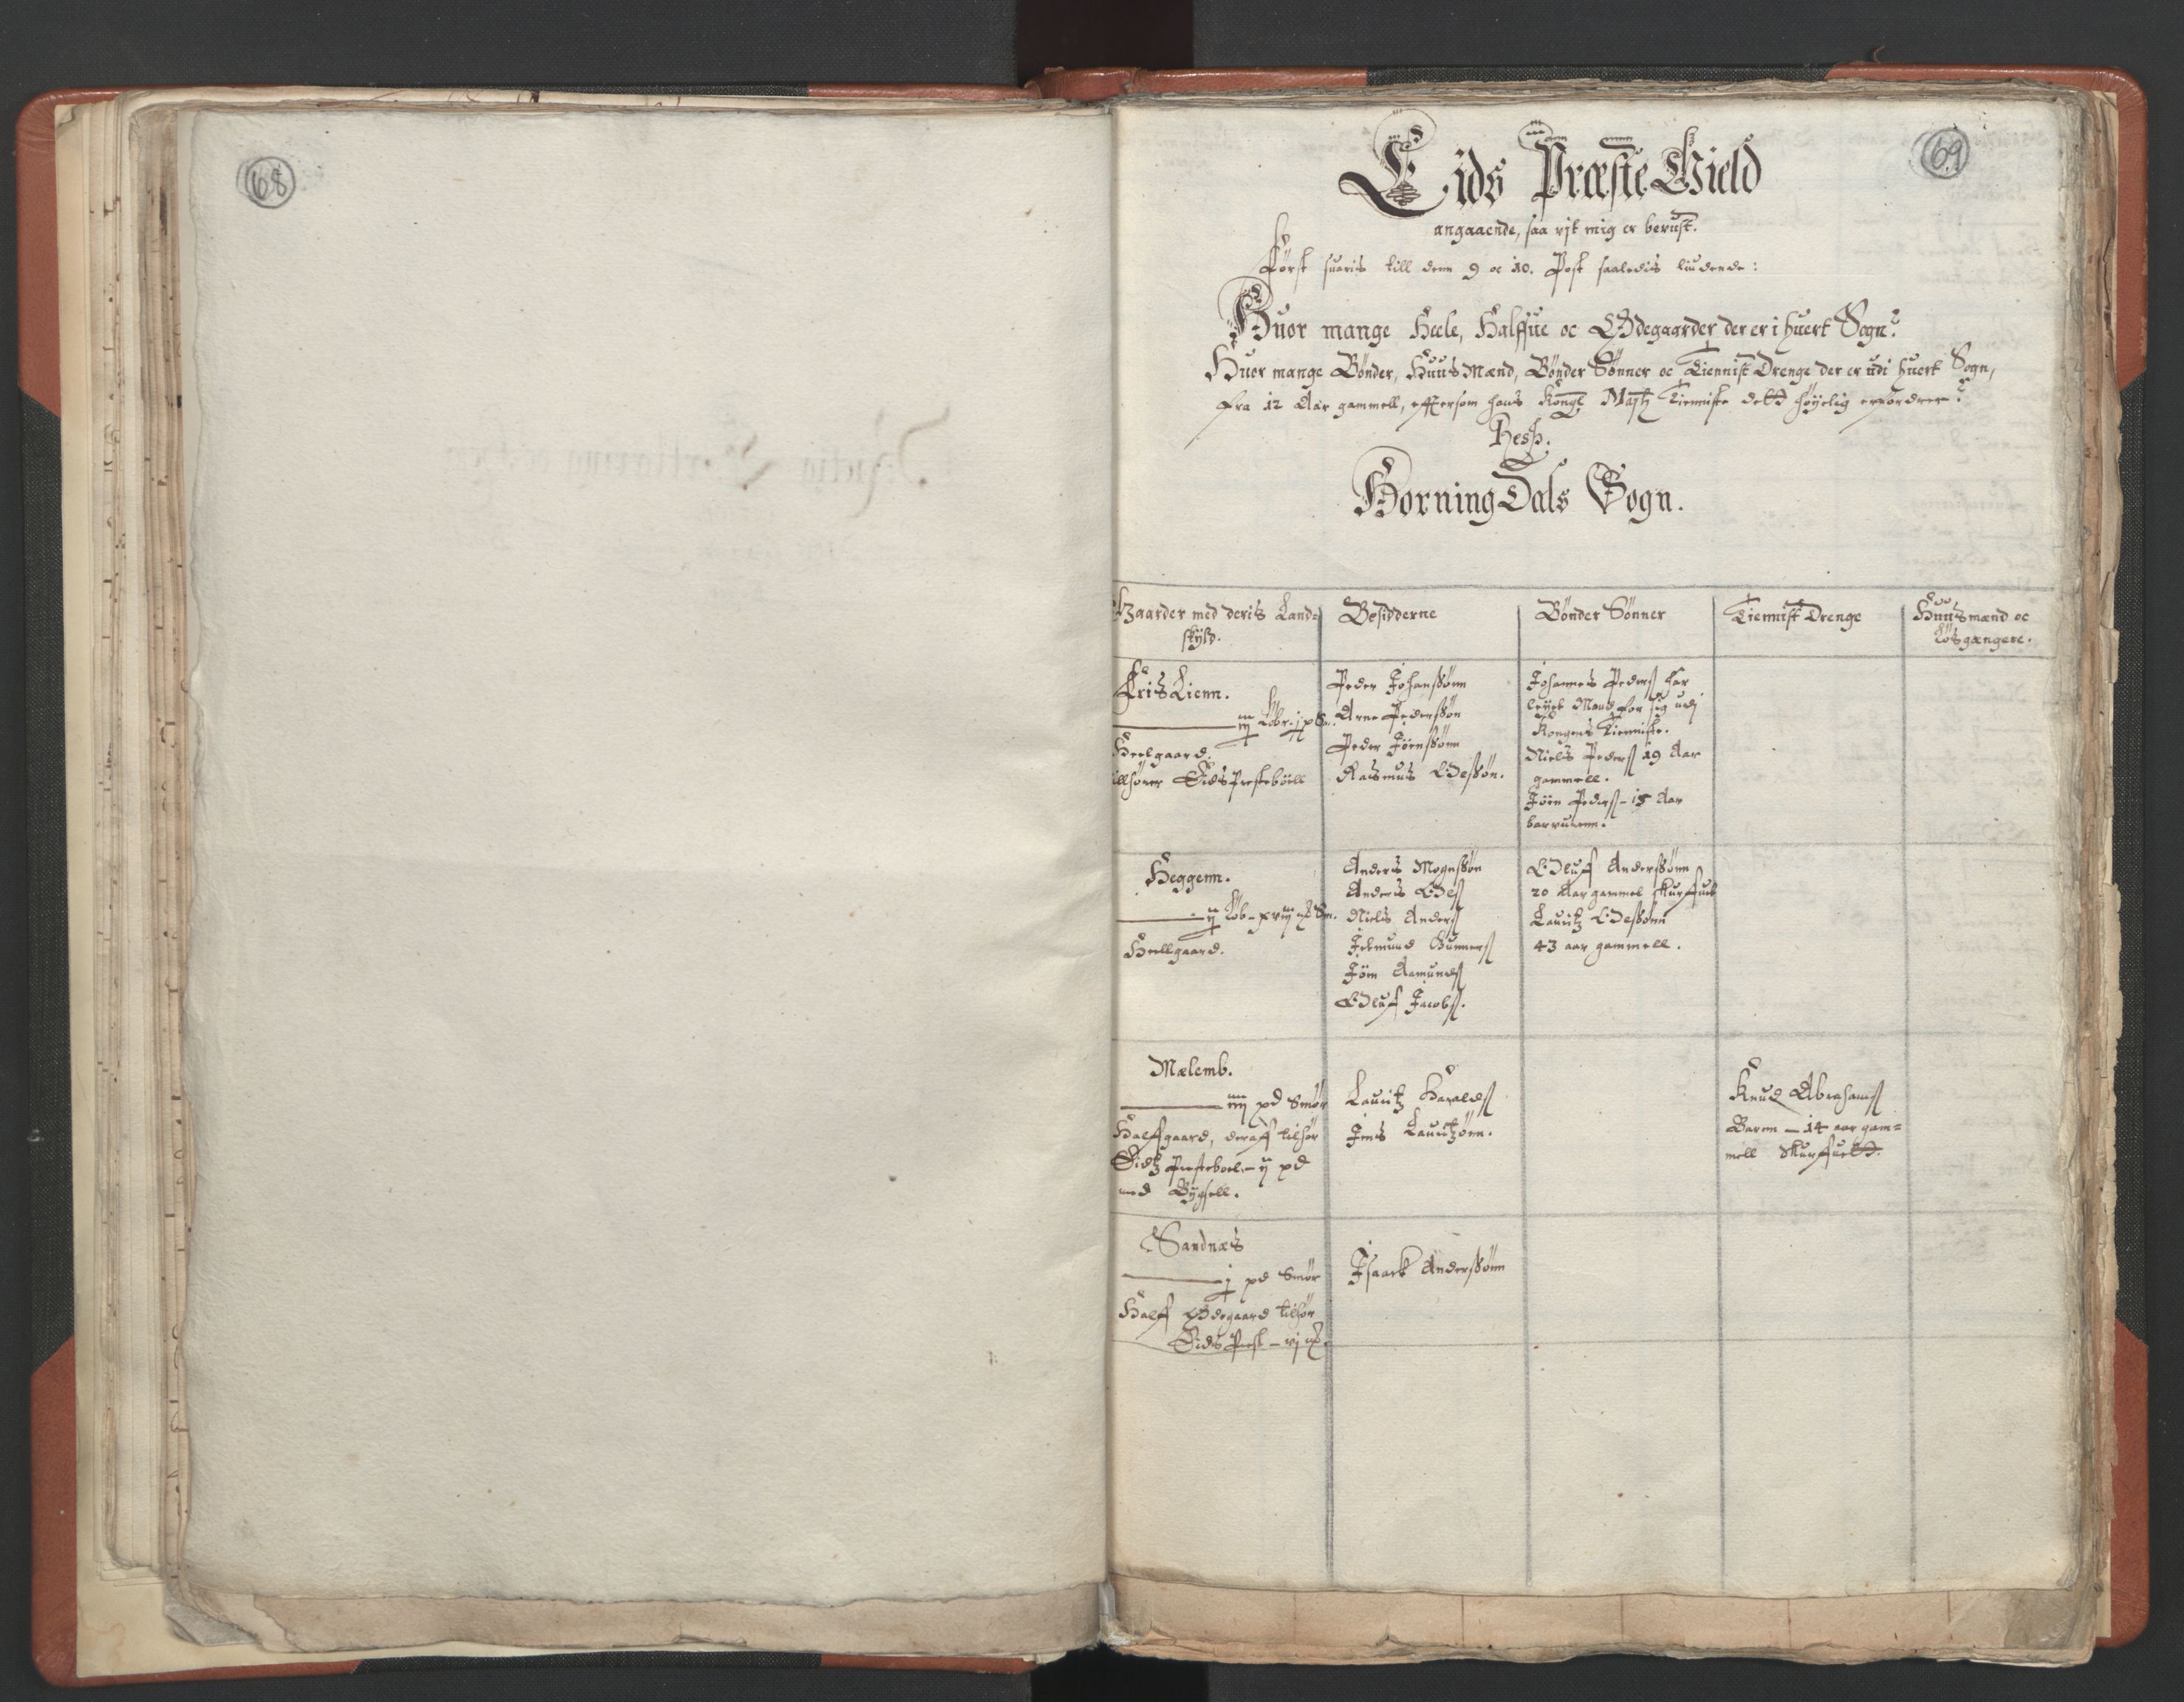 68
69
Eids Præste Gield
angaaende, saa vjt mig er bevust.
Først suaris till denn 9 oc 10. Post saaledis liudende:
Huor mange Heele, Halffue oc Ødegaarder der er i huert Sogn?
Huor mange Bønder, HuusMænd, Bønder Sønner oc Tiennist Drenge der er udi huert Sogn,
fra 12 Aar gammell, effersom hans Kongl Maytz Tienniste dett høyelig erfordrer?
Resp.
HorningDals Sogn.
Gaarder med deris Land=
skyld.
Besidderne
Bønder Sønner
Tiennist Drenge
Huusmænd oc
Løsgængere.
LrisLienn.
iij Løbr. j pd Sm.
Heelgaard.
tillhører Eids Prestebøell
Peder Johanssønn
Arne Pederssøn
Peder Jørnssønn
Rasmus Olessøn.
Johannes Peders har
leyet Mand for sig udj
Kongens Tienniste.
Niels Peders 19 Aar
gammell.
Jørn Peders - 15 Aar
Heggenn.
ij Løb - xviij mk Sm.
Heellgaard.
Anders Mognssøn
Anders Oles
Niels Anders
Gunners
Jørn Aamunds
Oluf Jacobs.
Oluf Anderssønn
20 Aar gammel skurfuet
Lauritz Olessønn
43 aar gammell.
Mælemb.
iiij pd Smør
Halffgaard, deraff tilhør
Eidtz Presteboel - ij pd
med Bygsell.
Lauritz Haralds
Jens Lauritzønn.
Knud Abrahams
Barn - 14 aar gam=
mell Skurfuett.
Sandnæs
j pd Smør
Halff Ødegaard tilhør
Eids Prest - vj mk.
Isaack Anderssønn